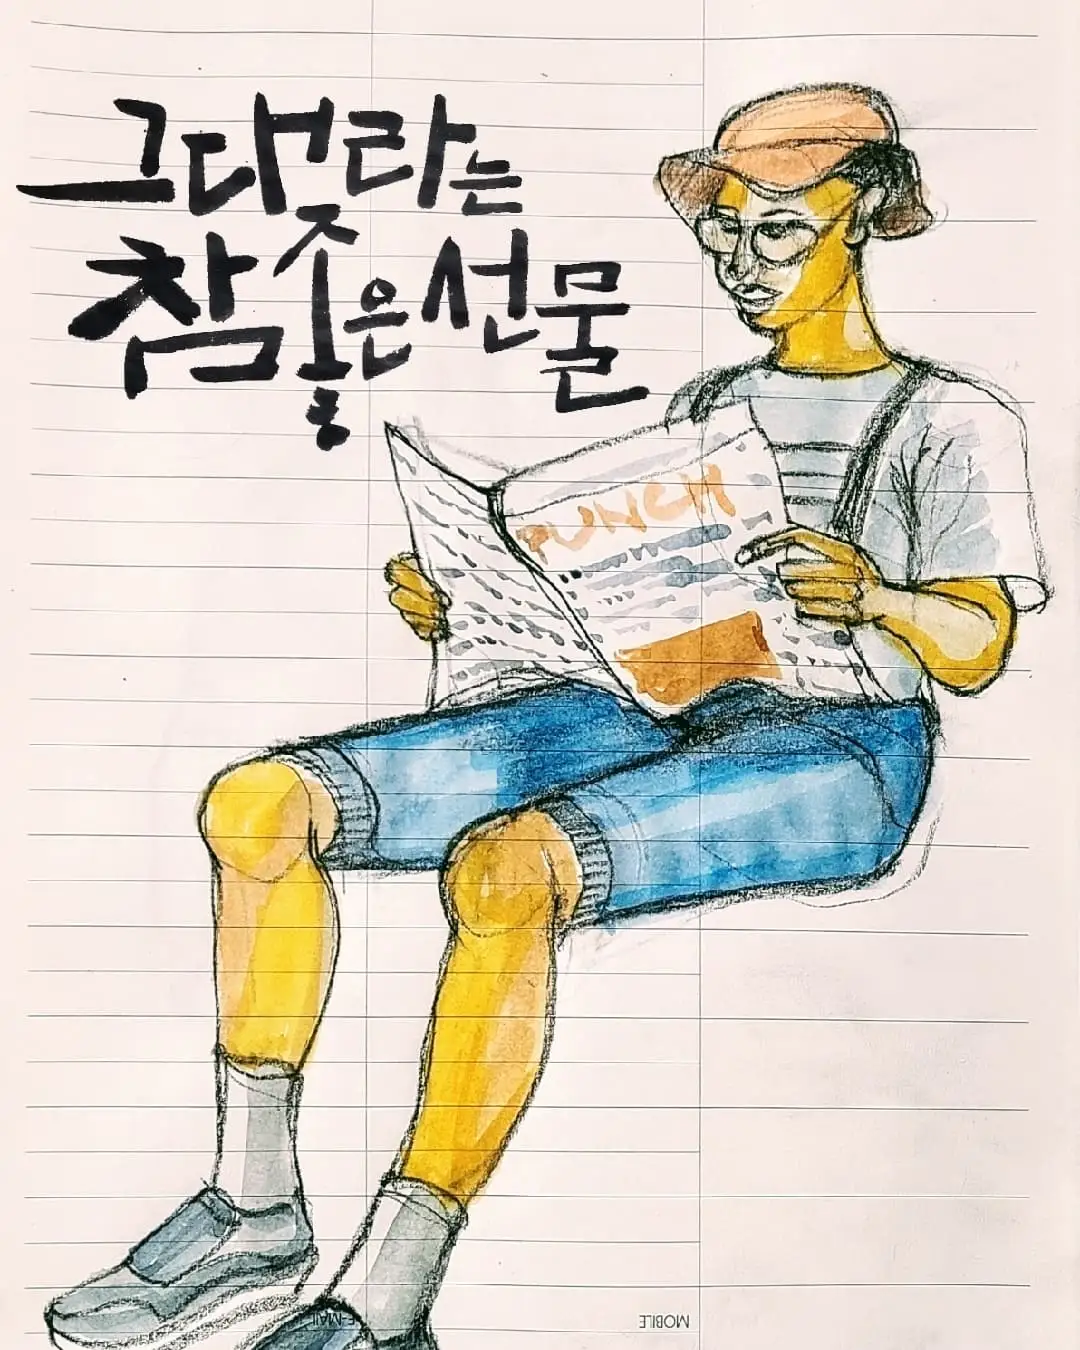 그댓라는
참 좋은 선물
PUNCH
E-MAIL
MOBILE